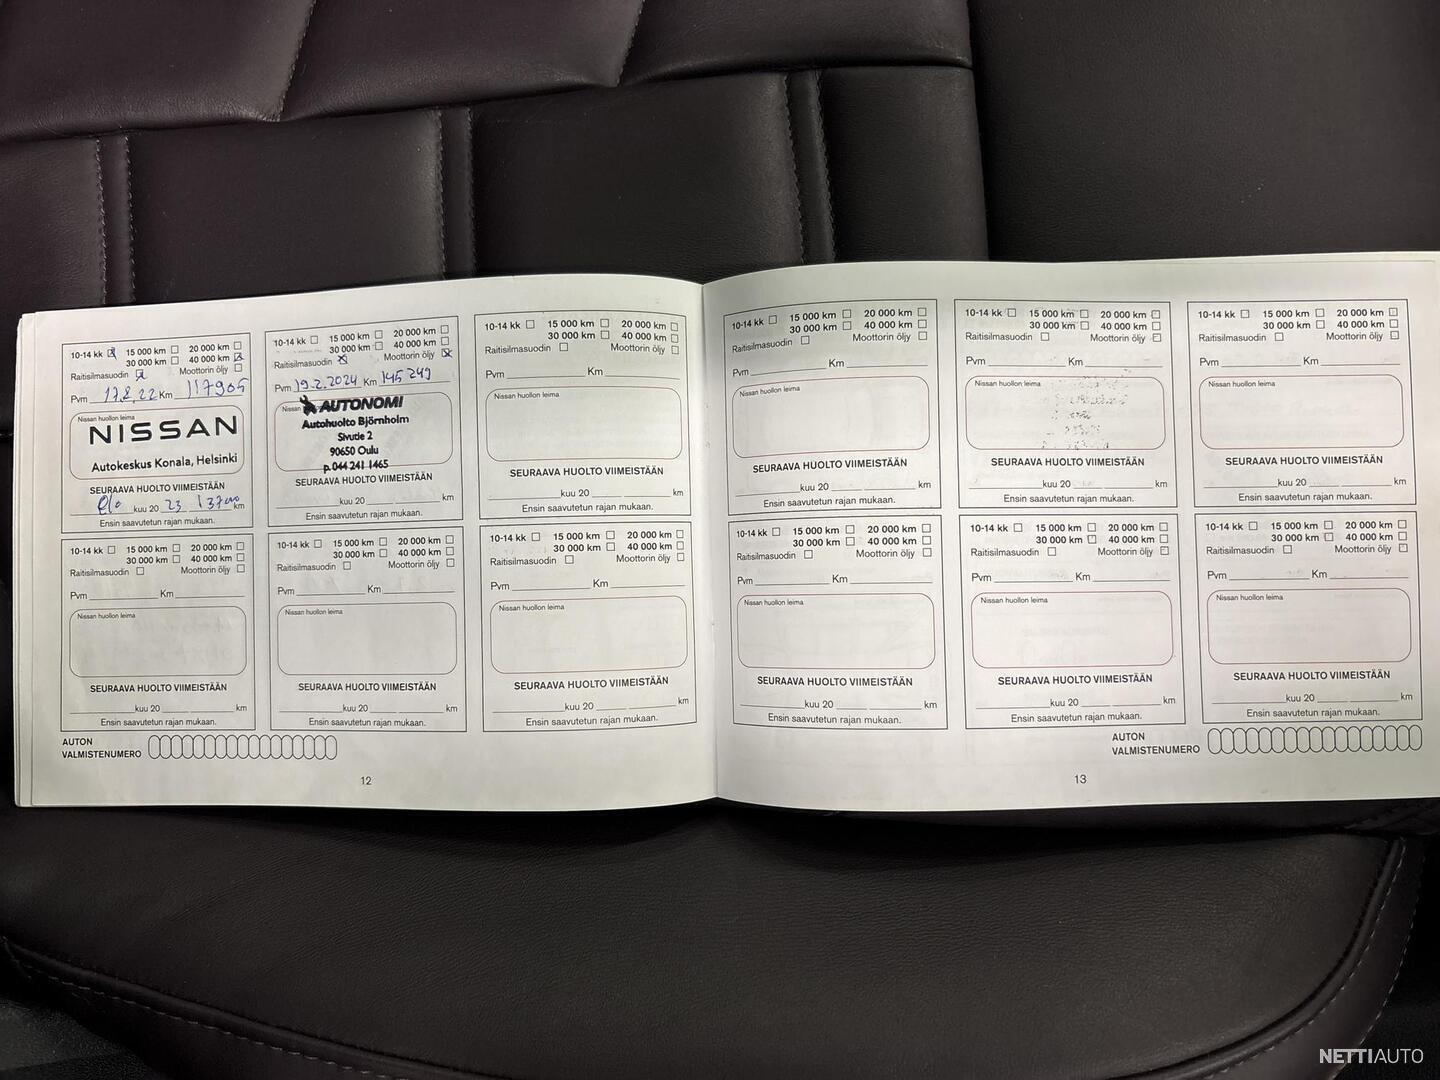 10-14 kk 15 000 km 20 000 km
30 000 km 40 000 km
Raitisilmasuodin Moottorin öljy
Pvm 17.8.22 Km 117905
Nissan huollon leima
NISSAN
Autokeskus Konala, Helsinki
SEURAAVA HUOLTO VIIMEISTÄÄN
elo kuu 20 23 137000 km
Ensin saavutetun rajan mukaan.
10-14 kk 15 000 km 20 000 km
30 000 km 40 000 km
Raitisilmasuodin Moottorin öljy
Pvm 19.2.2024 Km 145249
Nissan
AUTONOMI
Autohuolto Björnholm
Sivutie 2
90650 Oulu
p. 044 241 1465
SEURAAVA HUOLTO VIIMEISTÄÄN
kuu 20 km
Ensin saavutetun rajan mukaan.
10-14 kk 15 000 km 20 000 km
30 000 km 40 000 km
Raitisilmasuodin Moottorin öljy
Pvm Km
Nissan huollon leima
SEURAAVA HUOLTO VIIMEISTÄÄN
kuu 20 km
Ensin saavutetun rajan mukaan.
10-14 kk 15 000 km 20 000 km
30 000 km 40 000 km
Raitisilmasuodin Moottorin öljy
Pvm Km
Nissan huollon leima
SEURAAVA HUOLTO VIIMEISTÄÄN
kuu 20 km
Ensin saavutetun rajan mukaan.
10-14 kk 15 000 km 20 000 km
30 000 km 40 000 km
Raitisilmasuodin Moottorin öljy
Pvm Km
Nissan huollon leima
SEURAAVA HUOLTO VIIMEISTÄÄN
kuu 20 km
Ensin saavutetun rajan mukaan.
10-14 kk 15 000 km 20 000 km
30 000 km 40 000 km
Raitisilmasuodin Moottorin öljy
Pvm Km
Nissan huollon leima
SEURAAVA HUOLTO VIIMEISTÄÄN
kuu 20 km
Ensin saavutetun rajan mukaan.
AUTON
VALMISTENUMERO
12
10-14 kk 15 000 km 20 000 km
30 000 km 40 000 km
Raitisilmasuodin Moottorin öljy
Pvm Km
Nissan huollon leima
SEURAAVA HUOLTO VIIMEISTÄÄN
kuu 20 km
Ensin saavutetun rajan mukaan.
10-14 kk 15 000 km 20 000 km
30 000 km 40 000 km
Raitisilmasuodin Moottorin öljy
Pvm Km
Nissan huollon leima
SEURAAVA HUOLTO VIIMEISTÄÄN
kuu 20 km
Ensin saavutetun rajan mukaan.
10-14 kk 15 000 km 20 000 km
30 000 km 40 000 km
Raitisilmasuodin Moottorin öljy
Pvm Km
Nissan huollon leima
SEURAAVA HUOLTO VIIMEISTÄÄN
kuu 20 km
Ensin saavutetun rajan mukaan.
10-14 kk 15 000 km 20 000 km
30 000 km 40 000 km
Raitisilmasuodin Moottorin öljy
Pvm Km
Nissan huollon leima
SEURAAVA HUOLTO VIIMEISTÄÄN
kuu 20 km
Ensin saavutetun rajan mukaan.
10-14 kk 15 000 km 20 000 km
30 000 km 40 000 km
Raitisilmasuodin Moottorin öljy
Pvm Km
Nissan huollon leima
SEURAAVA HUOLTO VIIMEISTÄÄN
kuu 20 km
Ensin saavutetun rajan mukaan.
10-14 kk 15 000 km 20 000 km
30 000 km 40 000 km
Raitisilmasuodin Moottorin öljy
Pvm Km
Nissan huollon leima
SEURAAVA HUOLTO VIIMEISTÄÄN
kuu 20 km
Ensin saavutetun rajan mukaan.
AUTON
VALMISTENUMERO
13
NETTIAUTO